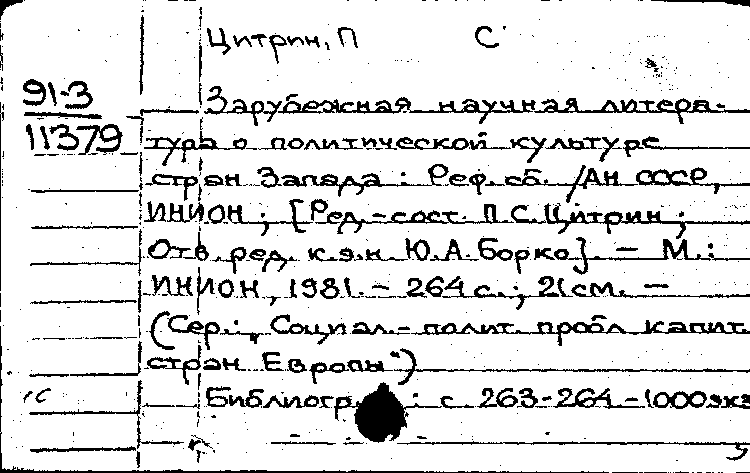 Цитрин, П С
91-3
11379
Зарубежная научная литера-
тура о политической культуре
стран Запада : Реф. сб. /АН СССР,
ИНИОН ; [Ред.-сост. П.С. Цитрин ;
Отв. ред. к.э.н. Ю.А. Борко]. - М. :
ИНИОН, 1981. - 264 с. ; 21 см. -
(Сер.: "Социал.- полит. пробл капит.
стран Европы")
Библиогр. : с 263-264 - 1000экз